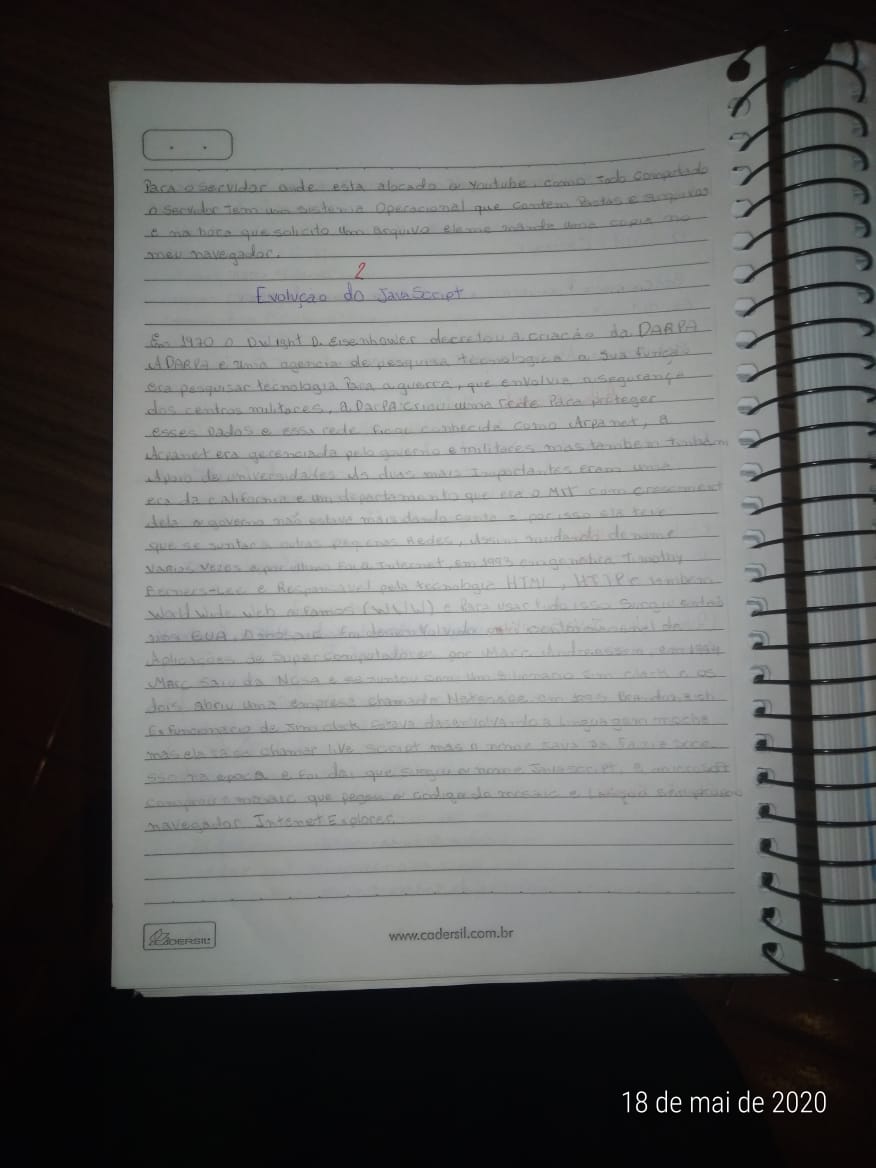 Para o servidor onde esta alocado o Youtube, como todo computado
o servidor tem um sistema Operacional que contem Pastas e arquivos
e na hora que solicito um arquivo ele me manda uma copia no
meu navegador.
2
Evolução do JavaScript
Em 1970 o Dwight D. Eisenhower decretou a criação da DARPA
A DARPA e uma agencia de pesquisa tecnologica a sua função
era pesquisar tecnologia Para a guerra, que envolvia a segurança
dos centros militares, a DarPA criou uma rede Para proteger
esses Dados e essa rede ficou conhecida como Arpanet, a
Arpanet era gerenciada pelo governo e militares mas tambem
Apoio de universidades As duas mais Importantes eram uma
era da california e um departamento que era o MIT com
dela o governo não estava mais dando conta e por isso ela teve
que se juntar a outras pequenas Redes, Assim mudando de nome
varias vezes e por ultimo Foi a Internet, em 1993 Timothy
Berners-Lee e Responsavel pela tecnologia HTML, HTTP e tambem
World Wide Web o famoso (WWW) e Para usar tudo isso Surgiu
nos EUA, Foi desenvolvido
Aplicações de supercomputadores por Marc em 1994
Marc saiu da Nasa e se juntou com um Jim Clark e os
dois abriu uma empresa chamada Netscape em
Ex Funcionario de Jim estava desenvolvendo a Linguagem
mas ela ia se chamar live Script mas o nome Java
na epoca e Foi dai que surgiu o nome Javascript, a microsoft
comprou o mosaic que pegou o codigo do mosaic e Lançou
navegador Internet Explorer.
CADERSIL
www.cadersil.com.br
18 de mai de 2020